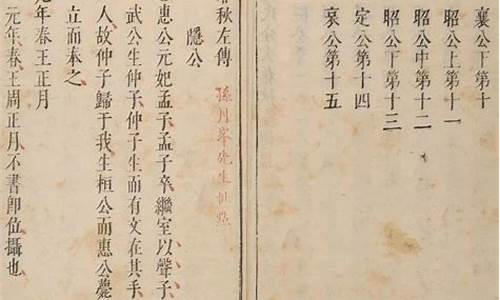 襄公下第十
昭公上第十一
昭公中第十二
昭公下第十三
定公第十四
哀公第十五
春秋左傳 孫月峯先生批點
隱公
惠公元妃孟子孟子卒繼室以聲子
武公生仲子仲子生而有文在其手
人故仲子歸于我生桓公而惠公薨
立而奉之
元年春王正月
元年春王周正月不書即位攝也